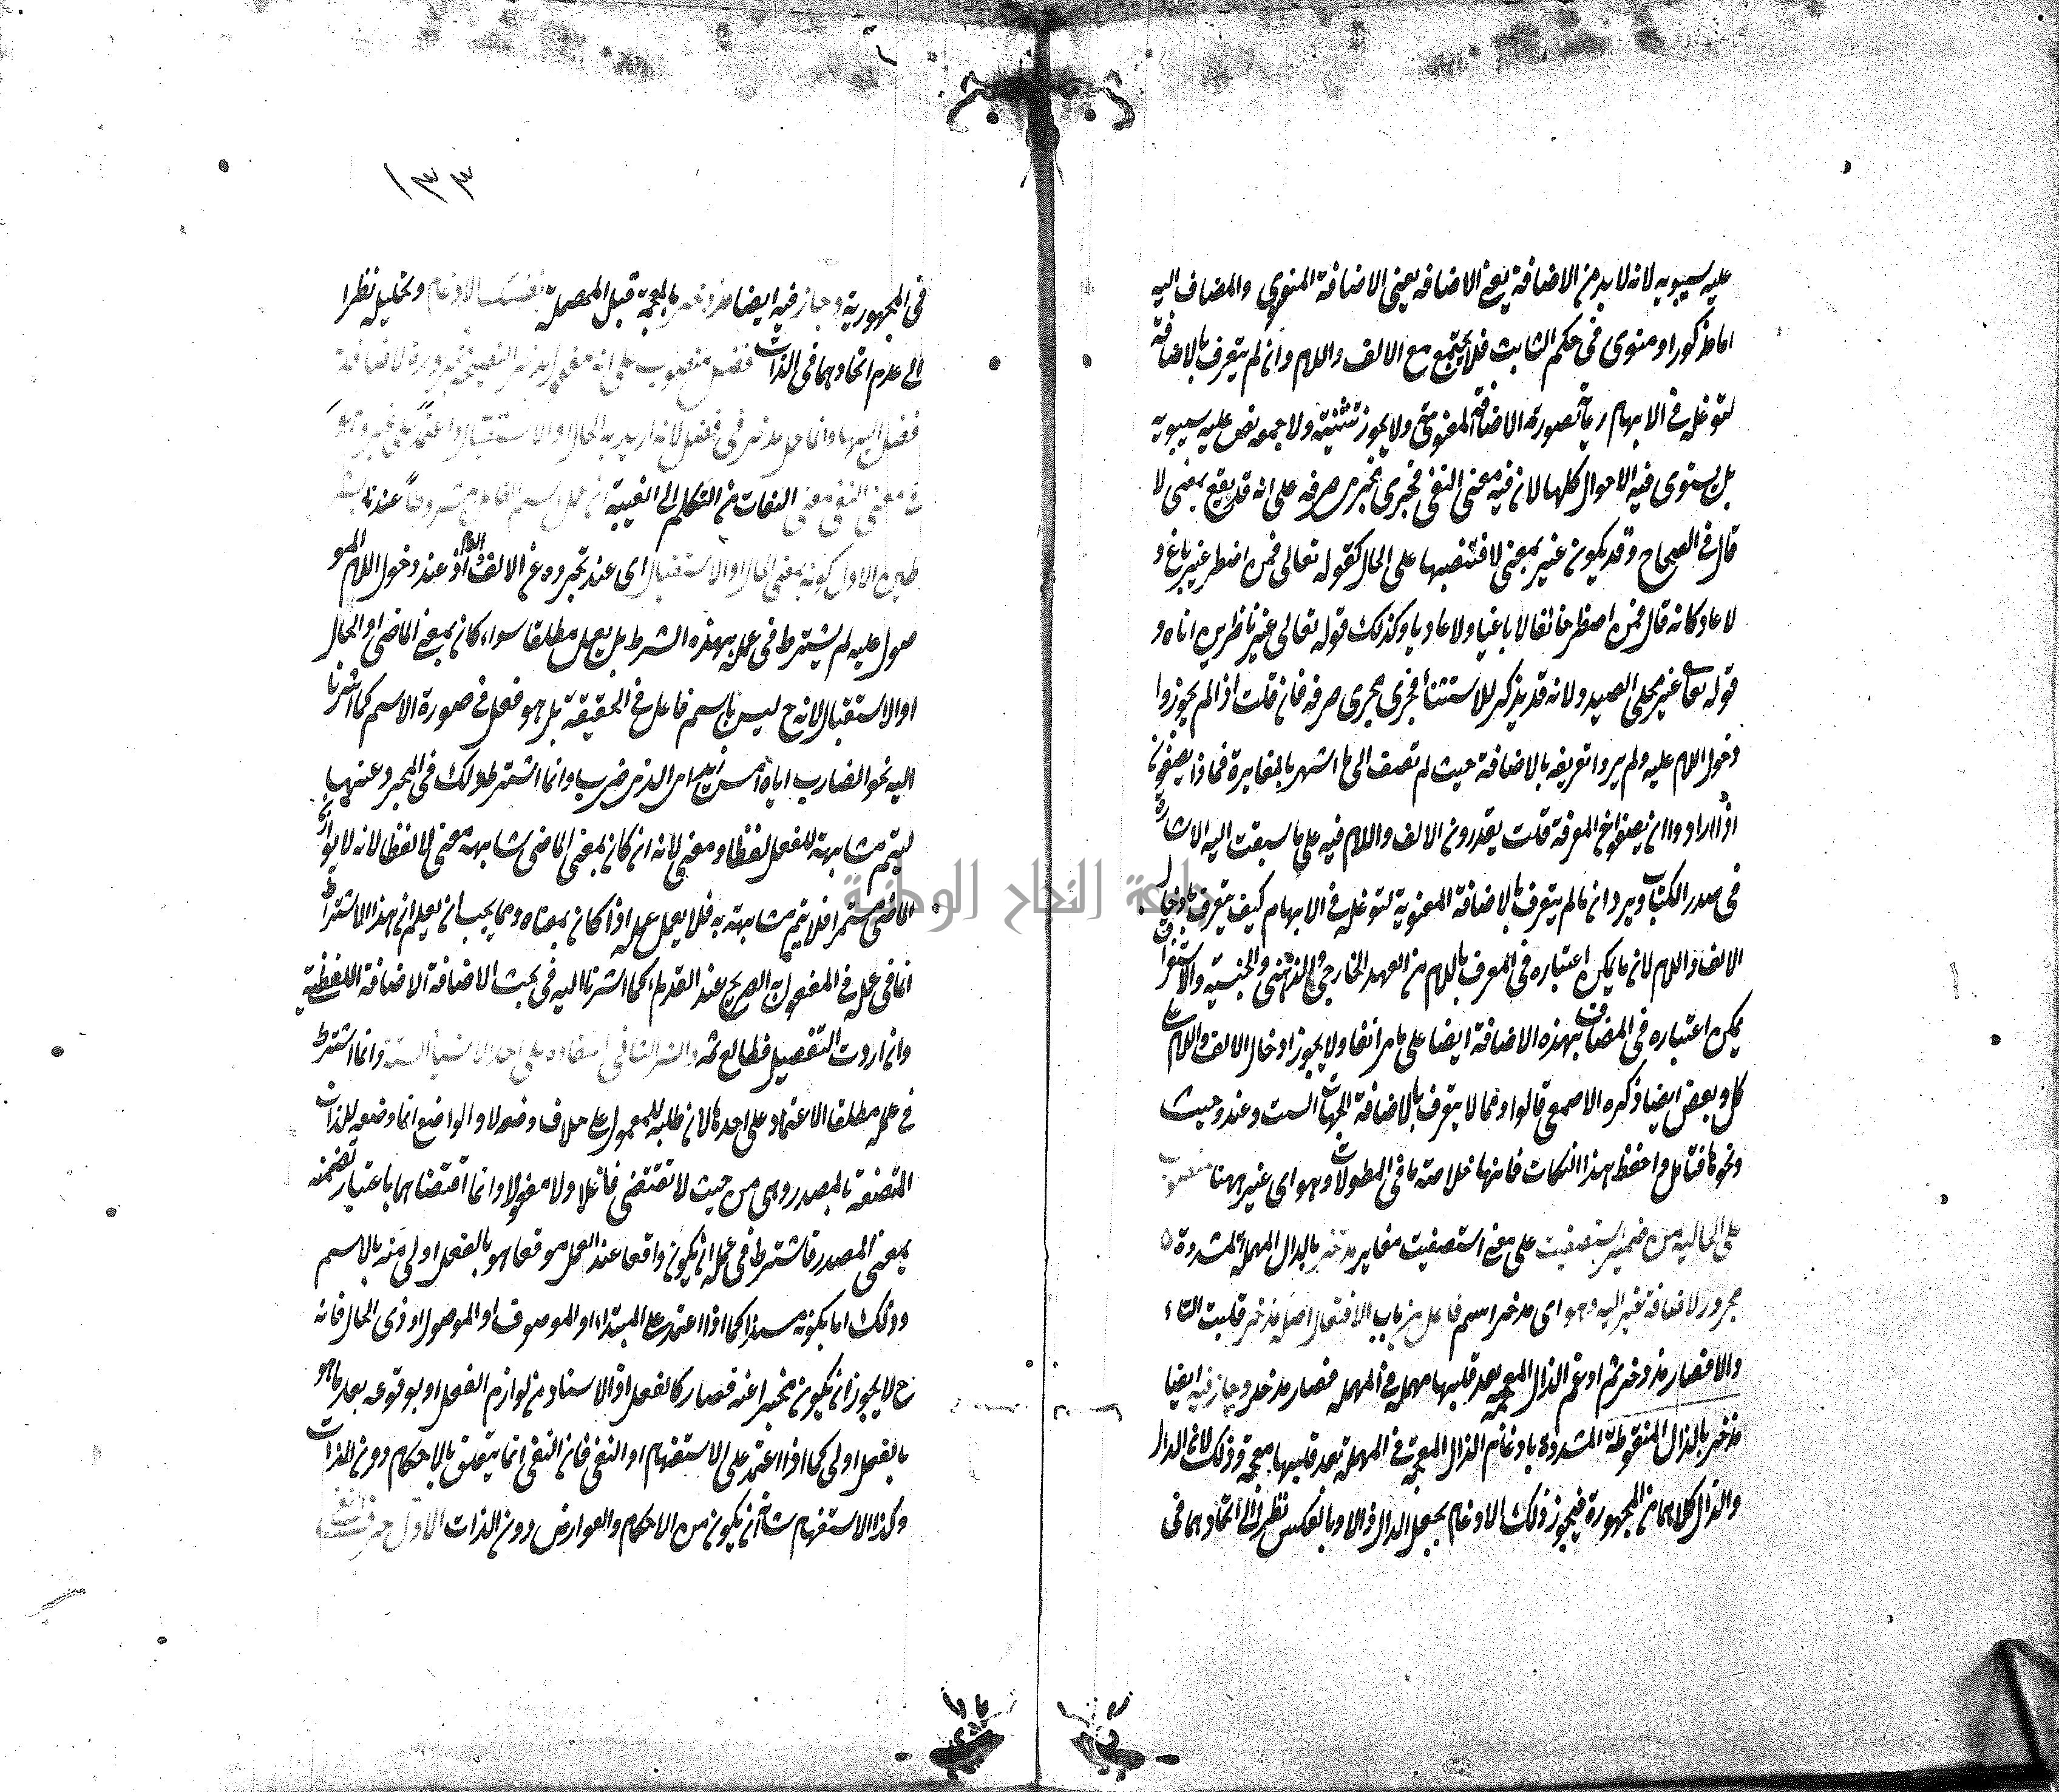 عليه سيبويه لانه لا بد من الاضافة يعني الاضافه يعني الاضافة المنوى والمضاف اليه
اما مذكور او منوى فى حكم الثابت فلا يجتمع مع الالف واللام وان لم يتعرف بالاضافة
لتوغله فى الابهام بصورة الاضافة المعنوية ولا يجوز تثنيته ولا جمعه نص عليه سيبويه
بل يستوى فيه الاحوال كلها لان فيه معنى النفى فجرى مجرى حرفه على انه قد يقع بمعنى لا
قال فى الصحاح وقد يكون غير بمعنى لا فتنصبها على الحال كقوله تعالى فمن اضطر غير باغ و
لا عاد كانه قال فمن اضطر خائفا لا باغيا ولا عاديا وكذلك قوله تعالى غير ناظرين اناه و
قوله تعالى غير محلى الصيد ولانه قد يذكر للاستثناء فجرى مجرى حرفه فان قلت اذا لم يجوزوا
دخول اللام عليه ولم يروا تعريفه بالاضافة حيث لم تضف الى ما اشتهر بالمغايرة فماذا يصنعون
اذا ارادوا ان يصفوا المعرفة قلت يقدرون الالف واللام فيه على ما سبقت اليه الاشارة
فى صدر الكتاب ويرد ان ما لم يتعرف بالاضافة المعنوية لتوغله فى الابهام كيف يتعرف بادخال
الالف واللام لان ما يمكن اعتباره فى المعرف باللام من العهد الخارجى والذهنى والجنسية والاستغراق
يمكن اعتباره فى المضاف بهذه الاضافة ايضا على ما مر انفا ولا يجوز ادخال الالف واللام على
كل وبعض ايضا ذكره الاصمعى قالوا ومما لا يتعرف بالاضافة الجهات الست وعند وحيث
ونحوها فتامل واحفظ هذا النكات فانها خلاصة ما فى المطولات وهو اى غير ههنا منصوب
على الحالية من ضمير استصفيت على معنى استصفيت مغاير مدخر بالدال المهملة المشددة
مجرور لاضافة غير اليه وهو اى مدخر اسم فاعل من باب الافتعال اصله مذتخر قلبت التاء
دالا فصار مذدخر ثم ادغم الذال المعجمة بعد قلبها مهملة فى المهملة فصار مدخر وجاز فيه ايضا
مذخر بالذال المنقوطة المشددة بادغام الذال المعجمة فى المهملة بعد قلبها معجمة وذلك لان الدال
والذال كلاهما من المجهورة فيجوز ذلك الادغام بجعل الدال ذالا وبالعكس نظرا الى اتحادهما فى
١٣٣
فى المجهورية وجاز فيه ايضا مذدخر بالمعجمة قبل المهملة بفك الادغام وتحليل نظرا
الى عدم اتحادهما فى الذات فضل منصوب على انه مفعول مدخر النصيحة مجرورة لاضافة
فضل اليها وانما عمل مدخر فى فضل لانه اريد به الحال او الاستقبال واعتمد على غير وهو
فى معنى النفى معنى التفات من التكلم الى الغيبة ان عمل اسم الفاعل مشروط عندنا بشر
طين الاول كونه بمعنى الحال او الاستقبال اى عند تجرده عن الالف اللام اذ عند دخول اللام المو
صول عليه لم يشترط فى عمله بهذه الشرط بل يعمل مطلقا سواء كان بمعنى الماضى او الحال
او الاستقبال لانه ح ليس باسم فاعل فى الحقيقة بل هو فعل فى صورة الاسم كما اشرنا
اليه نحو الضارب اباه امس زيد اى الذى ضرب وانما اشترط ذلك فى المجرد عنها
ليتم مشابهته للفعل لفظا ومعنى لانه ان كان بمعنى الماضى شابهه معنى لا لفظا لانه لا يوازن
الماضى مستمرا فلا يتم مشابهته به فلا يعمل عمله اذا كان بمعناه ومما يجب ان يعلم ان هذا الاشتراط
انما فى عمله فى المفعول به الصريح عند القدماء كما اشرنا اليه فى بحث الاضافة الاضافة اللفظية
وان اردت التفصيل فطالع ثمه والشرط الثانى اعتماده على احد الاشياء الستة وانما اشترط
فى عمله مطلقا الاعتماد على احدها لان طلبه للمعمول على خلاف وضعه لا والواضع انما وضعه للذات
المتصفة بالمصدر وهى من حيث لا تقتضى فاعلا ولا مفعولا وانما اقتضاهما باعتبار تضمنه
بمعنى المصدر فاشترط فى عمله ان يكون واقعا عند العمل موقعا هو بالفعل اولى منه بالاسم
وذلك اما بكونه مسندا كما اذا اعتمد على المبتداء او الموصوف او الموصول او ذى الحال فانه
ح لا يجوز ان يكون مخبرا عنه فصار كالفعل اذ الاسناد من لوازم الفعل او بوقوعه بعد ما هو
بالفعل اولى كما اذا اعتمد على الاستفهام او النفى فان النفى انما يتعلق بالاحكام دون الذات
وكذا الاستفهام شانه ان يكون من الاحكام والعوارض دون الذات الاول حرف النفى
جامعة النجاح الوطنية